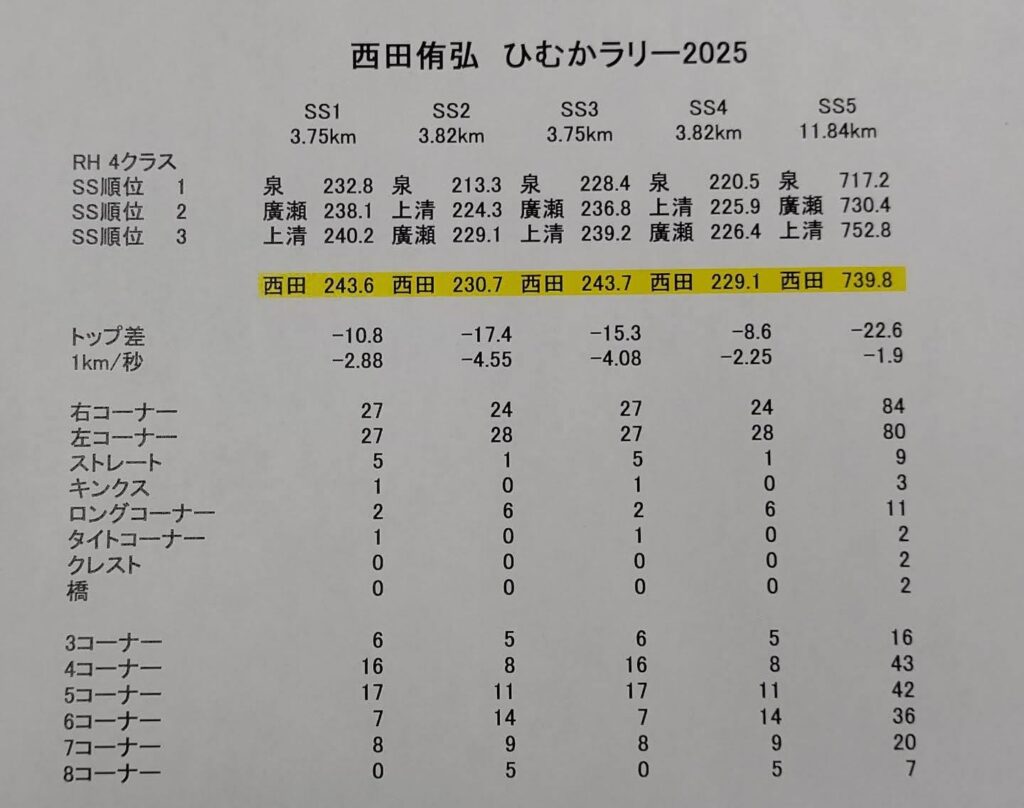 西田侑弘 ひむかラリー2025
SS1 SS2 SS3 SS4 SS5
3.75km 3.82km 3.75km 3.82km 11.84km
RH 4クラス
SS順位 1 泉 232.8 泉 213.3 泉 228.4 泉 220.5 泉 717.2
SS順位 2 廣瀬 238.1 上清 224.3 廣瀬 236.8 上清 225.9 廣瀬 730.4
SS順位 3 上清 240.2 廣瀬 229.1 上清 239.2 廣瀬 226.4 上清 752.8
西田 243.6 西田 230.7 西田 243.7 西田 229.1 西田 739.8
トップ差 -10.8 -17.4 -15.3 -8.6 -22.6
1km/秒 -2.88 -4.55 -4.08 -2.25 -1.9
右コーナー 27 24 27 24 84
左コーナー 27 28 27 28 80
ストレート 5 1 5 1 9
キンクス 1 0 1 0 3
ロングコーナー 2 6 2 6 11
タイトコーナー 1 0 1 0 2
クレスト 0 0 0 0 2
橋 0 0 0 0 2
3コーナー 6 5 6 5 16
4コーナー 16 8 16 8 43
5コーナー 17 11 17 11 42
6コーナー 7 14 7 14 36
7コーナー 8 9 8 9 20
8コーナー 0 5 0 5 7